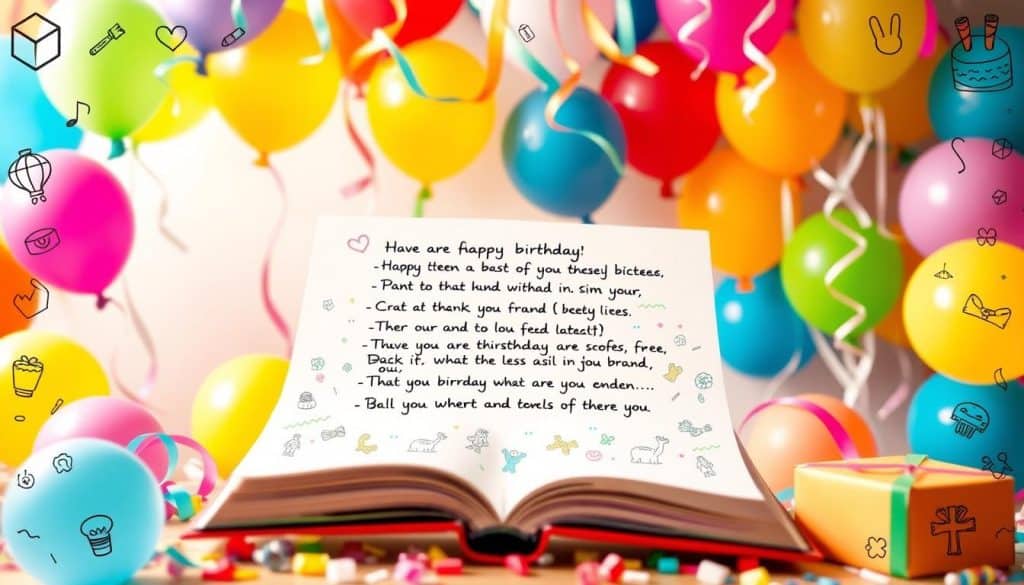 Have are fiappy birthday!
- Happy tteen a bast of you thesej bictees,
- Pant to that hund withad in. sim your,
- Crat at thank you frand ( beety lices.
- Ther our and to lou feed latest†)
- Thuve you are thirsthday are scofes, free,
Dack if. what the less asil in jou brand,
oui,
- That you birrday what are you enden....
- Ball you whert and tovels of there you.